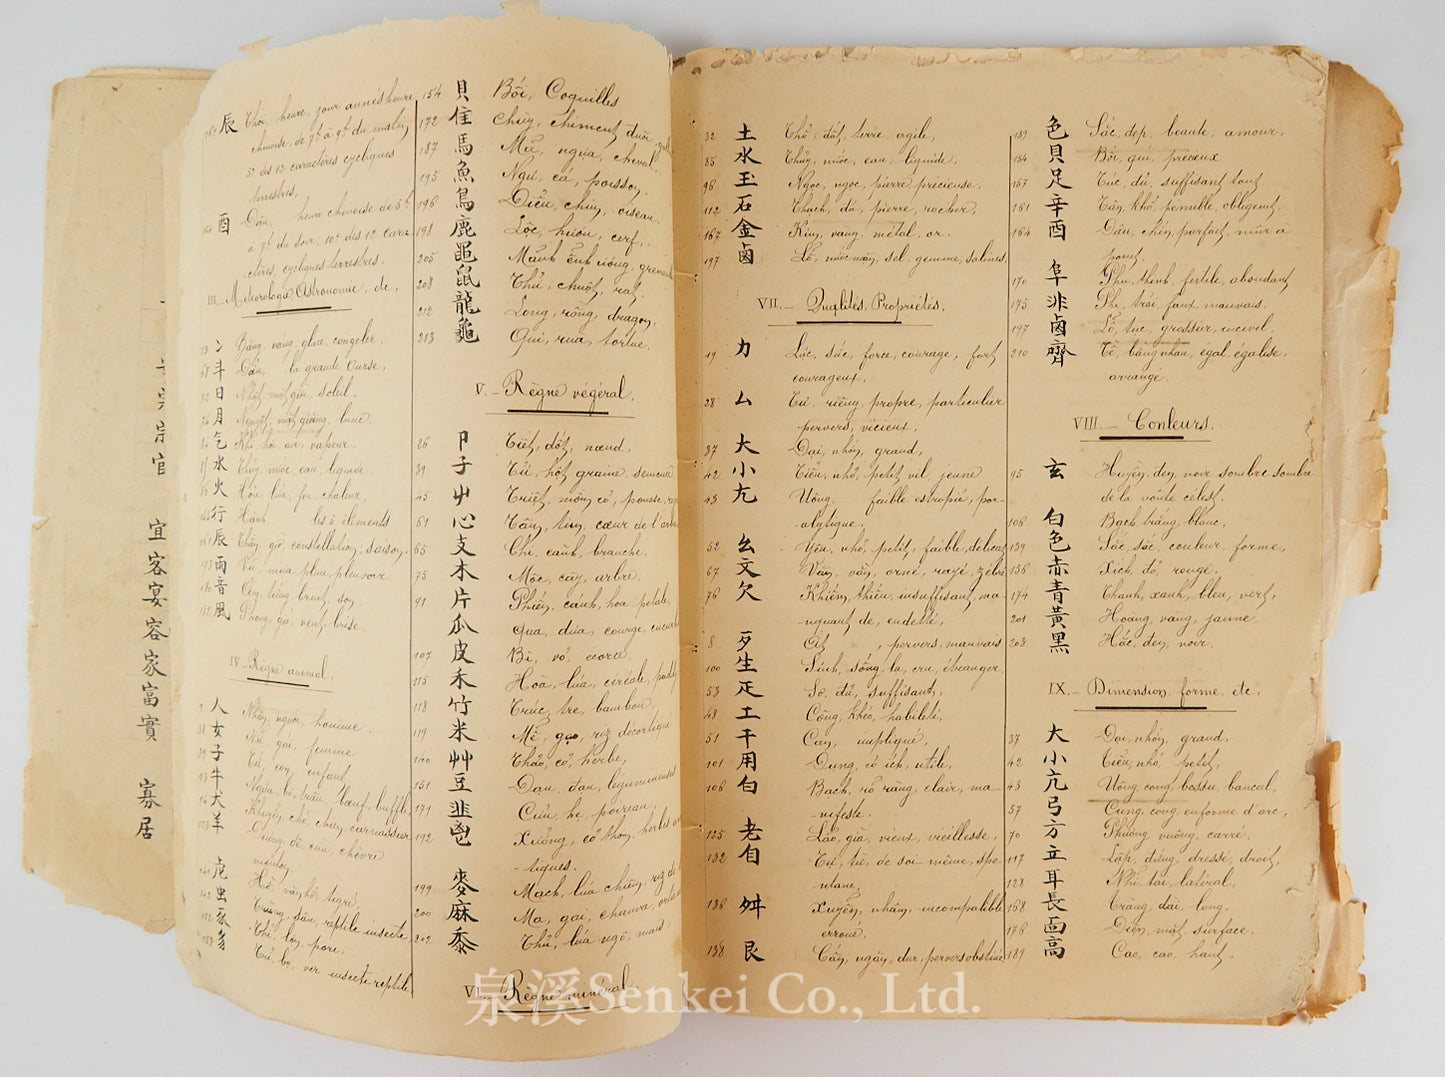 宜
客
宴
容
家
富
實
寡
居
辰 heure, jour année heure
chinoise, de 7h à 9h du matin
5e des 12 caractères cycliques
terrestres.
酉 Dậu, heure chinoise de 5h
à 7h du soir, 10e des 12 cara
ctères cycliques terrestres.
III. _ Météorologie Astronomie, etc,
冫 Băng, váng, glace, congeler.
斗 Đẩu, la grande Ourse.
日 Nhật, mặt giời, soleil.
月 Nguyệt, mặt giăng, lune.
气 Khí, hơi, air, vapeur.
水 Thủy, nước, eau, liquide.
火 Hỏa, lửa, feu, chaleur.
行 Hành, les 5 éléments
辰 Thần, giờ, constellation, saison.
雨 Vũ, mưa, pluie, pleuvoir
音 Âm, tiếng, bruit, son.
風 Phong, gió, vent, brise.
IV _ Règne animal.
人 Nhân, người, homme.
女 Nữ, gái, femme
子 Tử, con, enfant
牛 Ngưu, bò, trâu, bœuf, buffle,
犬 Khuyển, chó, chien, carnassier
羊 Dương, dê, cừu, chèvre
mouton.
虍 Hổ, vằn hổ, tigre.
虫 Trùng, sâu, reptile, insecte,
豕 Thỉ, lợn, porc,
豸 ver, insecte, reptile
154 貝 Bối, Coquilles
172 隹
187 馬 Mã, ngựa, cheval,
195 魚 Ngư, cá, poisson,
196 鳥 Điểu, chim, oiseau.
198 鹿 Lộc, hươu, cerf,
205 黽
208 鼠 Thử, chuột, rat,
212 龍 Long, rồng, dragon,
213 龜 Qui, rùa, tortue.
V. _ Règne végéral.
26 卩 Tiết, đốt, nœud,
39 子 Tử, hột, graine, semence
45 屮 Triệt, mông cỏ, pousse,
61 心 Tâm, tim, cœur de l'arbre
65 支 Chi, cành, branche,
75 木 Mộc, cây, arbre.
91 片 Phiến, cánh hoa, petale,
瓜 Qua, dưa, courge,
107 皮 Bì, vỏ, écorce.
115 禾 Hoà, lúa, céréale, paddy
118 竹 Trúc, tre, bambou.
119 米 Mễ, gạo, riz décortiqué
140 艸 Thảo, cỏ, herbe,
151 豆 Đậu, đậu, légumineuses
179 韭 Cửu, hẹ, poireau,
192 鬯 Xưởng, cỏ thơm, herbes
tiques.
199 麥 Mạch, lúa chiêm, riz de
200 麻 Ma, gai, chanvre,
202 黍 Thử, lúa ngô, maïs
VI _ Règne minéral.
32 土 Thổ, đất, terre, agile,
85 水 Thủy, nước, eau, liquide,
96 玉 Ngọc, ngọc, pierre précieuse.
112 石 Thạch, đá, pierre, rocher,
167 金 Kim, vàng, métal, or.
197 鹵 Lỗ, nước mặn, sel gemme, salines,
VII. _ Qualités, Propriétés,
19 力 Lúc, sức, force, courage, fort
courageux.
28 厶 Tư, riêng, propre, particulier
pervers, vicieux,
37 大 Đại, nhớn, grand,
42 小 Tiểu, nhỏ, petit, vil, jeune
43 尢 Uông, faible, estropié, par-
alytique.
52 幺 Yêu, nhỏ, petit, faible, délicat
67 文 Văn, vằn, orné, rayé, zébré
76 欠 Khiếm, thiếu, insuffisant, ma-
nquant de, endetté,
8 歹 , pervers, mauvais
100 生 Sinh, sống, la, cru, étranger,
53 疋 Sơ, đủ, suffisant,
48 工 Công, khéo, habileté,
51 干 Can, impliqué,
101 用 Dụng, có ích, utile,
106 白 Bạch, rõ ràng, clair, ma-
nifeste.
125 老 Lão, già, vieux, vieillesse,
132 自 Tự, từ, de soi-même, spo-
ntané,
136 舛 Xuyễn, nhầm, incompatible,
erroné,
138 艮 Cấn, ngăn, dur, pervers, obstiné
139 色 Sắc, đẹp, beauté, amour,
154 貝 Bối, quí, précieux
157 足 Túc, đủ, suffisant, tout.
161 辛 Tân, khổ, pénible, obligent,
164 酉 Dậu, chín, parfait, mûr à
point.
170 阜 Phu, thịnh, fertile, abondant
175 非 Phi, trái, faux, mauvais.
197 鹵 Lỗ, tục, grossier, incivil.
210 齊 Tề, bằng nhau, égal, égaliser,
arrangé.
VIII. _ Couleurs.
95 玄 Huyền, đen, noir, sombre, sombre
de la voûte célest,
106 白 Bạch, trắng, blanc,
139 色 Sắc, sắc, couleur, forme,
156 赤 Xích, đỏ, rouge.
174 青 Thanh, xanh, bleu, vert,
201 黃 Hoàng, vàng, jaune.
203 黑 Hắc, đen, noir,
IX. _ Dimension, forme, etc,
37 大 Đại, nhớn, grand,
42 小 Tiểu, nhỏ, petit,
43 尢 Uông, cong, bossu, bancal,
57 弓 Cung, cong, en forme d'arc,
70 方 Phương, vuông, carré.
117 立 Lập, đứng, dressé, droit,
128 耳 Nhĩ, tai, latéral,
168 長 Tràng, dài, long,
176 面 Diện, mặt, surface.
189 高 Cao, cao, haut,
泉溪Senkei Co., Ltd.